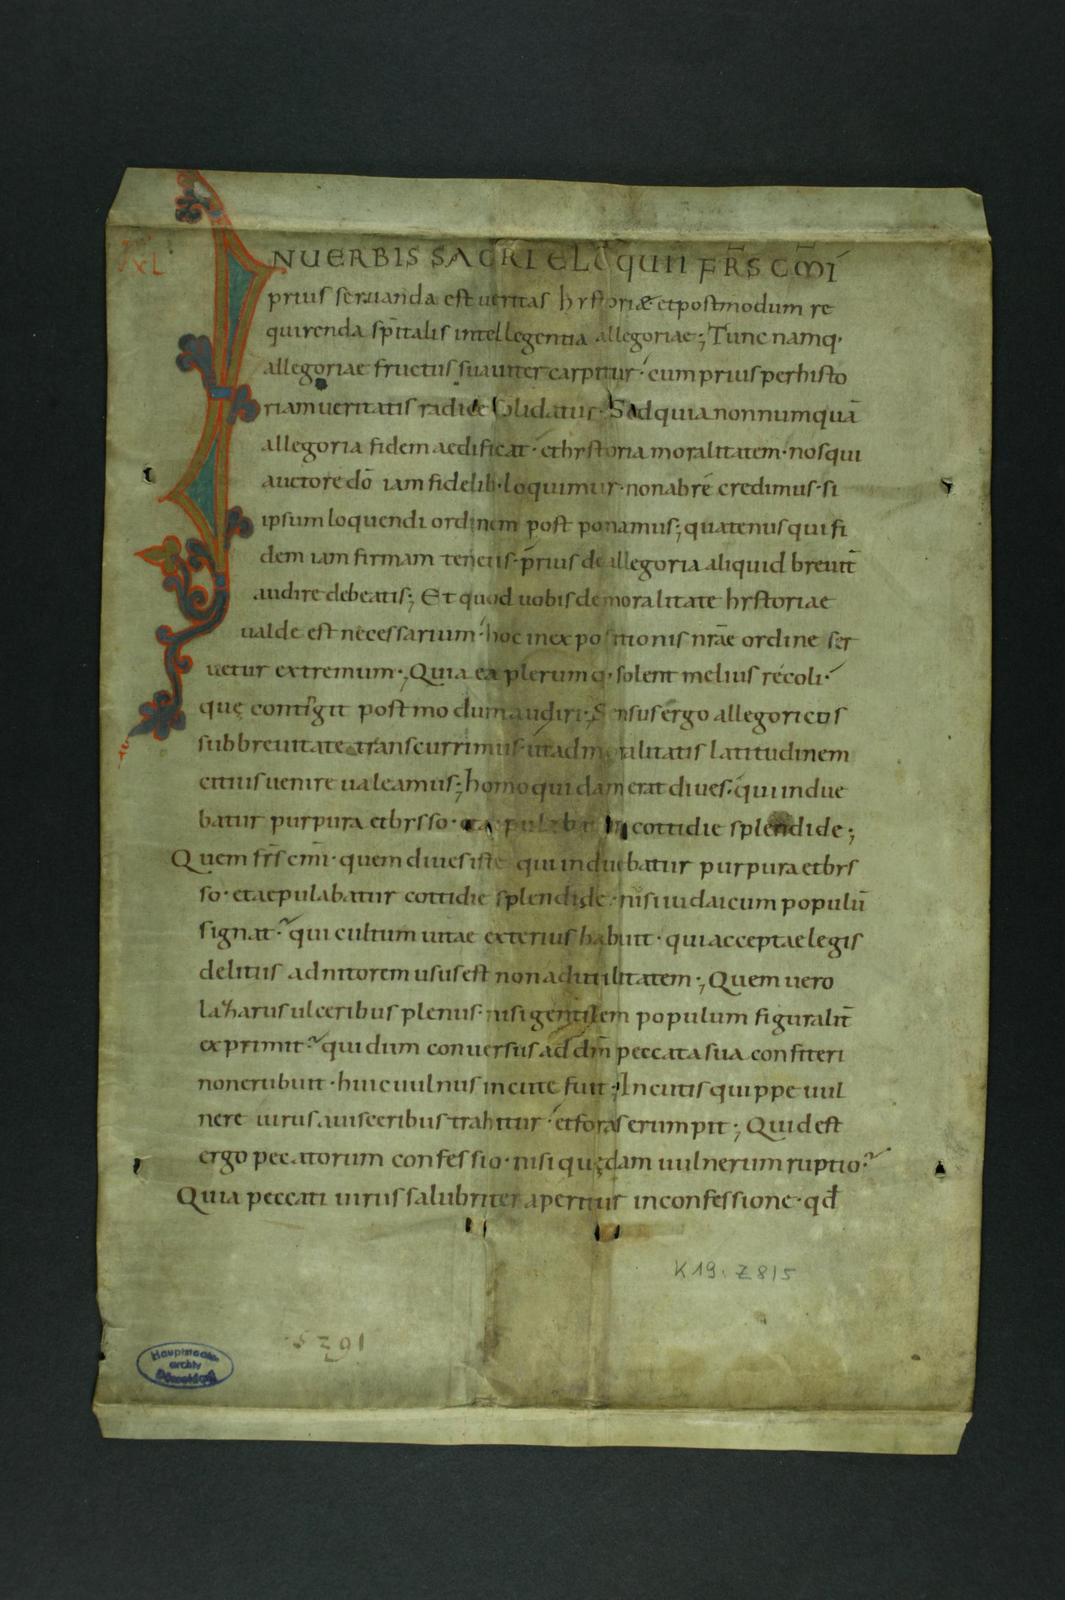 XL
INUERBIS SACRI ELOQUII FR̄S CM̄I
prius seruanda est ueritas hystoriæ et postmodum re
quirenda sp̄italis intellegentia allegoriae; Tunc namq·
allegoriae fructus suauiter carpitur· cum prius per histo
riam ueritatis radice solidatur· Sed quia nonnumquā
allegoria fidem aedificat· et hystoria moralitatem· nos qui
auctore dō iam fidelib· loquimur· non ab re credimus· si
ipsum loquendi ordinem post ponamus; quatenus qui fi
dem iam firmam tenetis· prius de allegoria aliquid breuit̄
audire debeatis; Et quod uobis de moralitate hystoriae
ualde est necessarium· hoc in expositionis nr̄ae ordine ser
uetur extremum·; Quia ea plerumq· solent melius recoli·
quę contigit postmodum audiri·; Sensus ergo allegoricos
sub breuitate transcurrimus· ut ad moralitatis latitudinem
citius uenire ualeamus; homo quidam erat diues· qui indue
batur purpura et bysso· et aepulabatur cottidie splendide;
Quem fr̄s cm̄i· quem diues iste qui induebatur purpura et bys
so· et aepulabatur cottidie splendide· nisi iudaicum populū
signat· qui cultum uitae exterius habuit· qui acceptae legis
delitiis ad nitorem usus est non ad utilitatem·; Quem uero
lazarus ulceribus plenus· nisi gentilem populum figuralit̄
exprimit· qui dum conuersus ad dm̄ peccata sua confiteri
non erubuit· huic uulnus in cute fuit·; In cutis quippe uul
nere uirus a uisceribus trahitur· et foras erumpit; Quid est
ergo peccatorum confessio· nisi quędam uulnerum ruptio·
Quia peccati uirus salubriter aperitur in confessione· qd̄
K 19. Z 8|5
Hauptstaats-
archiv
Düsseldorf